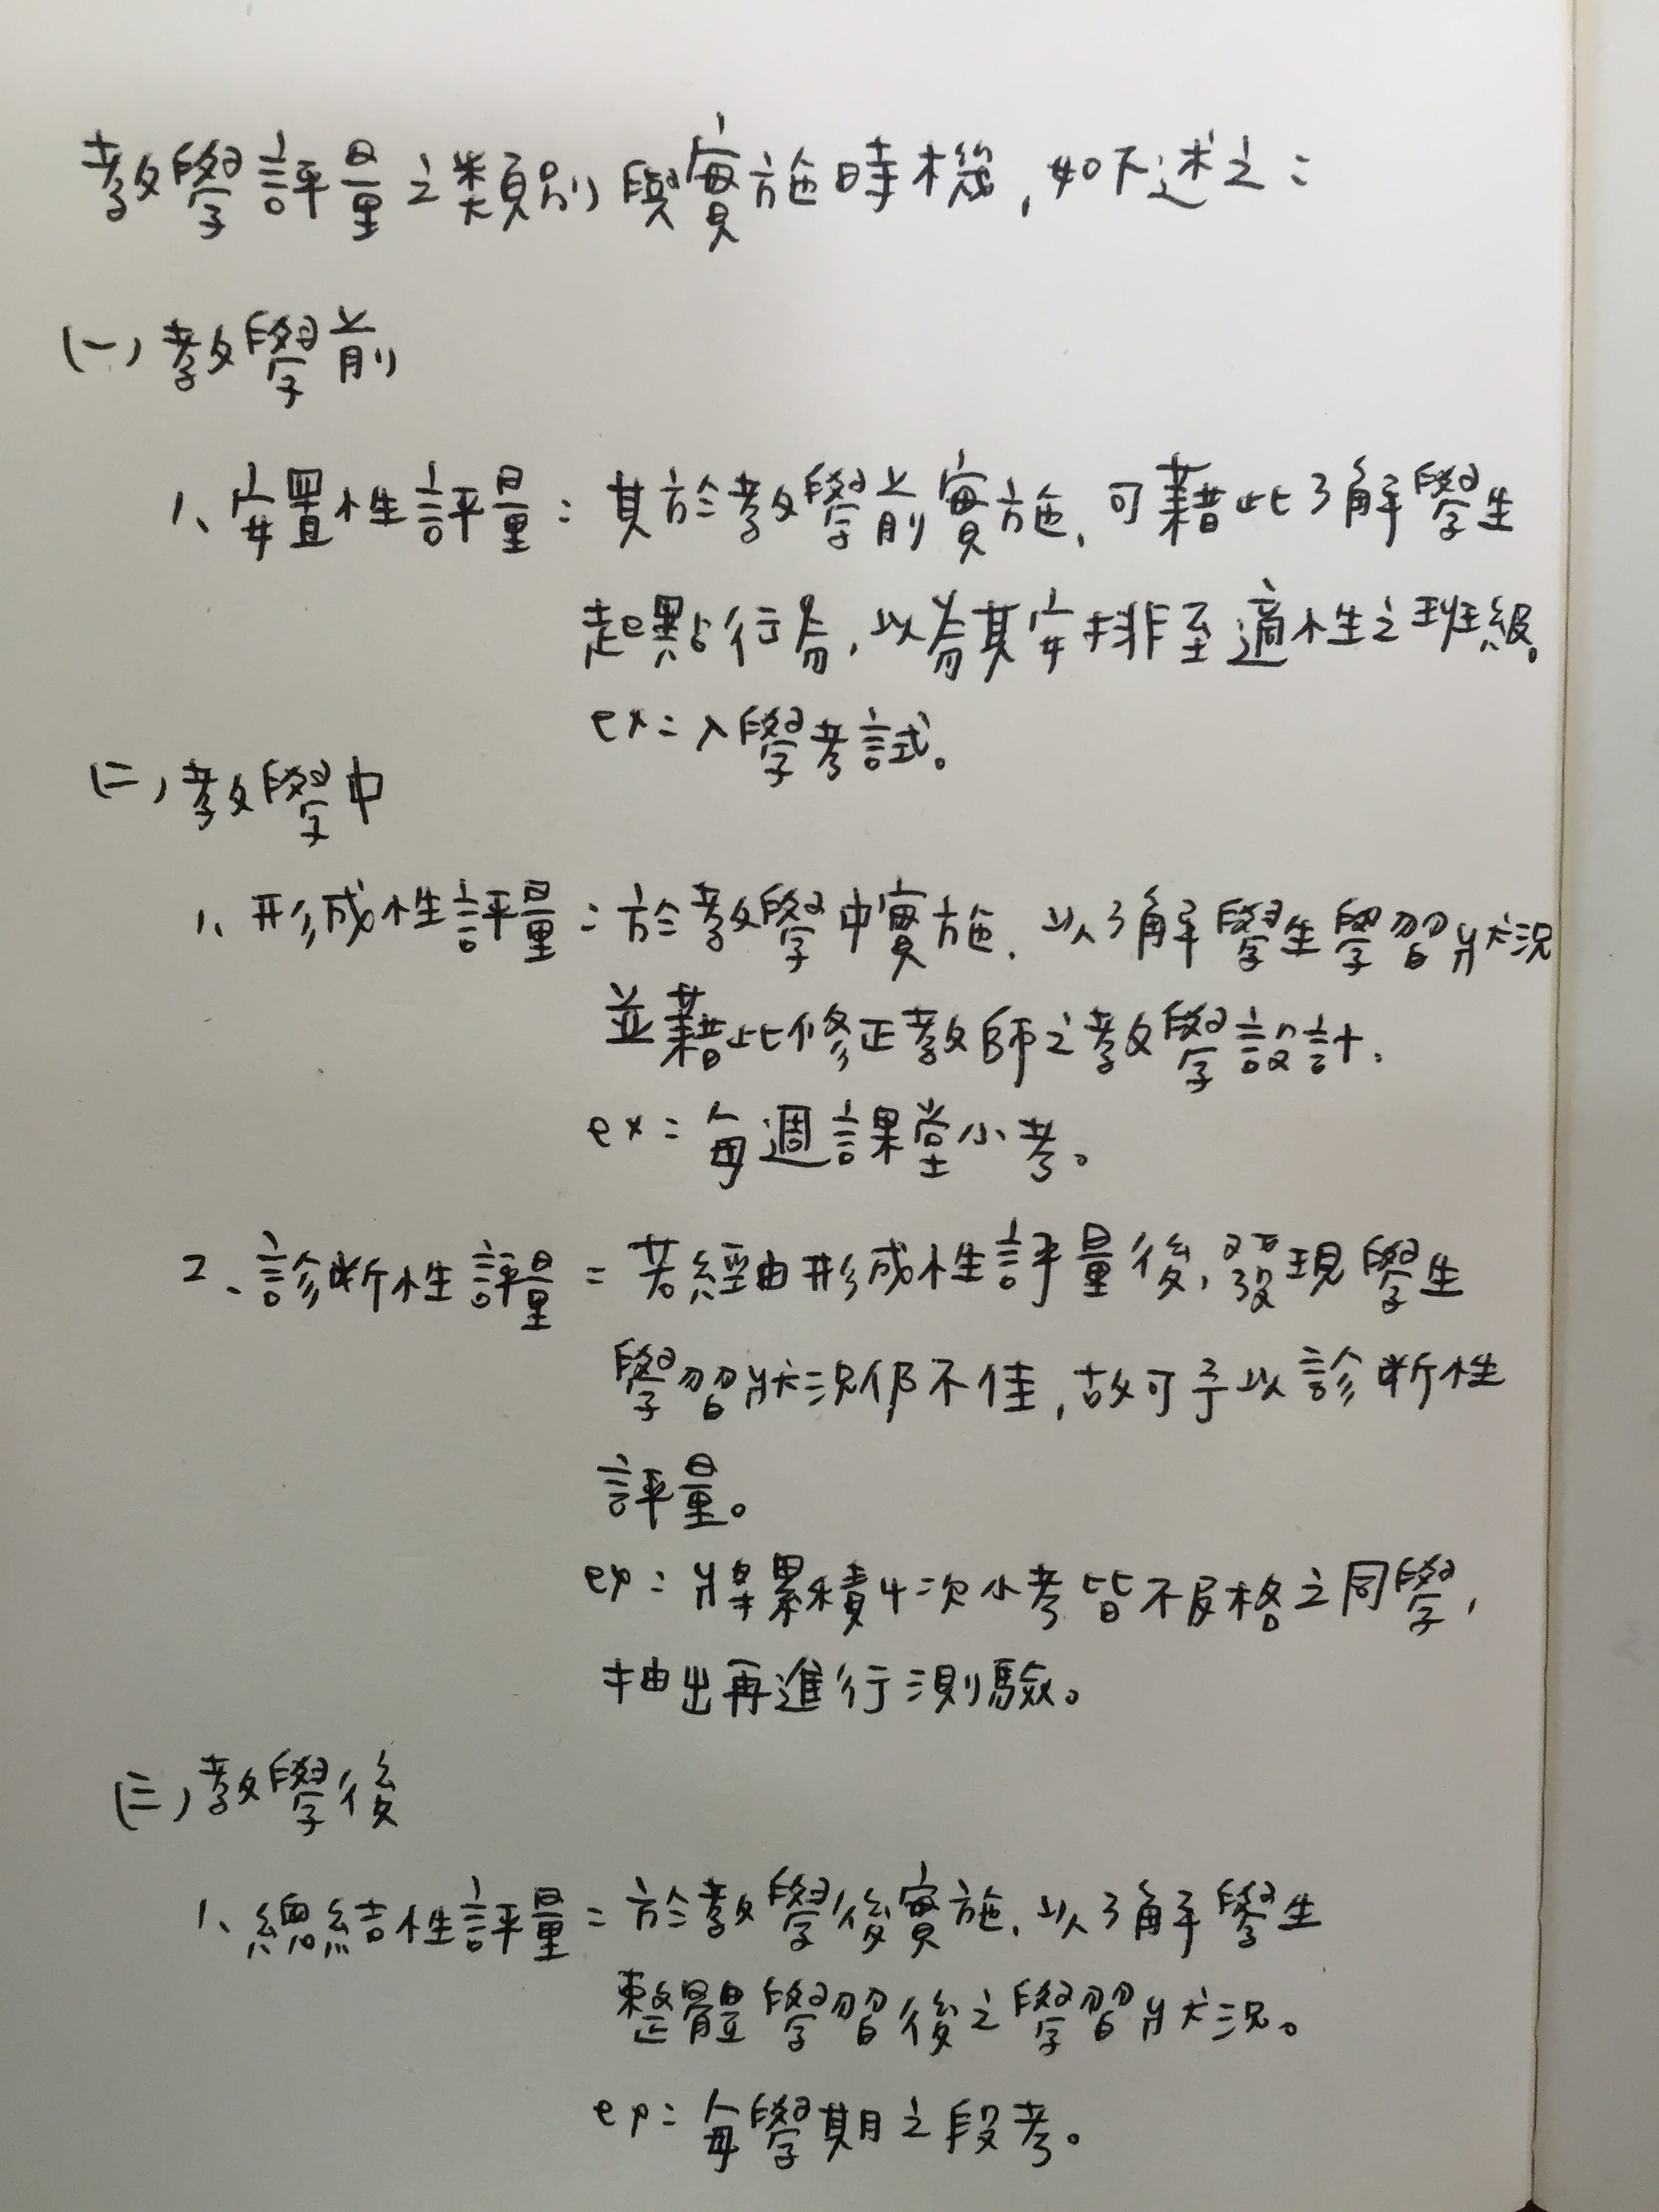 教學評量之類別與實施時機,如下述之:
(一)教學前
1、安置性評量:其於教學前實施,可藉此了解學生
起點行為,以為其安排至適性之班級。
ex:入學考試。
(二)教學中
1、形成性評量:於教學中實施,以了解學生學習狀況
並藉此修正教師之教學設計。
ex:每週課堂小考。
2、診斷性評量:若經由形成性評量後,發現學生
學習狀況仍不佳,故可予以診斷性
評量。
ex:將累積4次小考皆不及格之同學,
抽出再進行測驗。
(三)教學後
1、總結性評量:於教學後實施,以了解學生
整體學習後之學習狀況。
ex:每學期之段考。